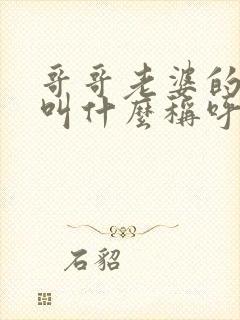 哥哥老婆的
叫什麼稱呼
石貂